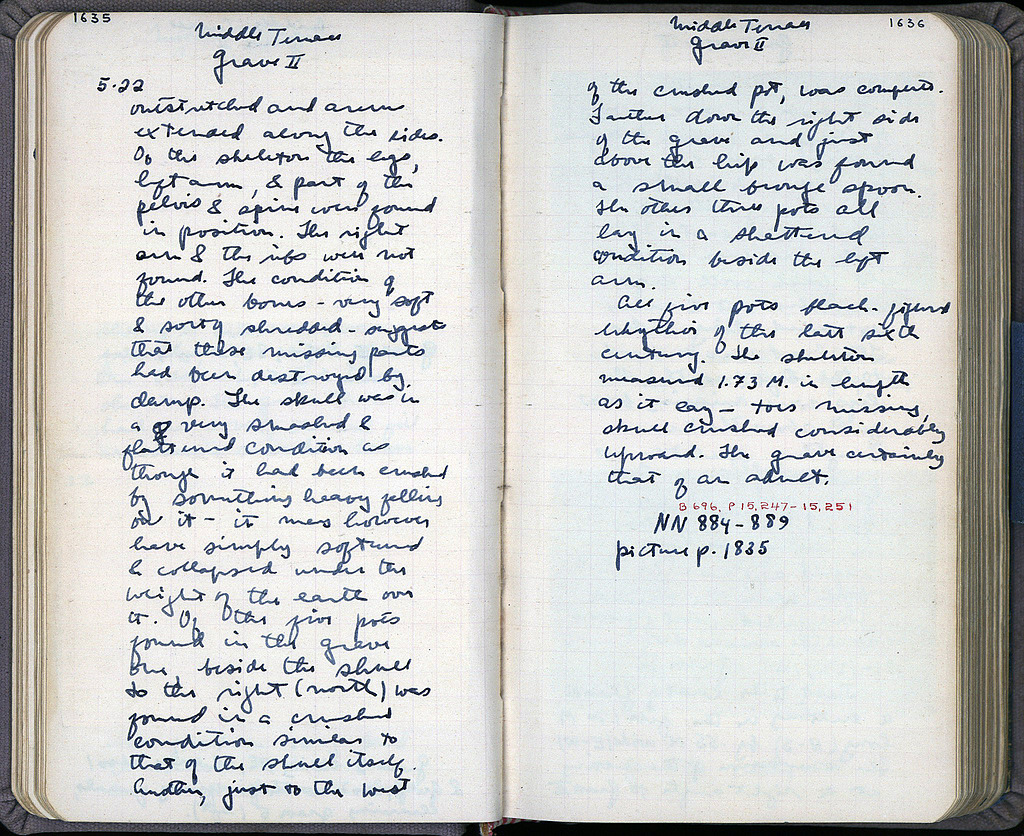 1635
Middle Terrace
Grave II
5.22
outstretched and arms
extended along the sides.
Of the skeleton the legs,
left arm, & part of the
pelvis & spine were found
in position. The right
arm & the ribs were not
found. The condition of
the other bones – very soft
& sorty shredded – suggest
that these missing parts
had been destroyed by
damp. The skull was in
a very smashed &
flattened condition as
though it had been crushed
by something heavy falling
on it – it may however
have simply softened
& collapsed under the
weight of the earth over
it. Of the five pots
found in the grave
one beside the skull
to the right (north) was
found in a crushed
condition similar to
that of the skull itself.
Another, just to the west
1636
Middle Terrace
Grave II
of the crushed pot, was complete.
Further down the right side
of the grave and just
above the hip was found
a small bronze spoon.
The other three pots all
lay in a shattered
condition beside the left
arm.
All five pots black-figured
lekythoi of the last sixth
century. The skeleton
measured 1.73 M. in length
as it lay – toes missing,
skull crushed considerably
upward. The grave certainly
that of an adult.
B 696, P 15,247–15,251
NN 884–889
picture p. 1835